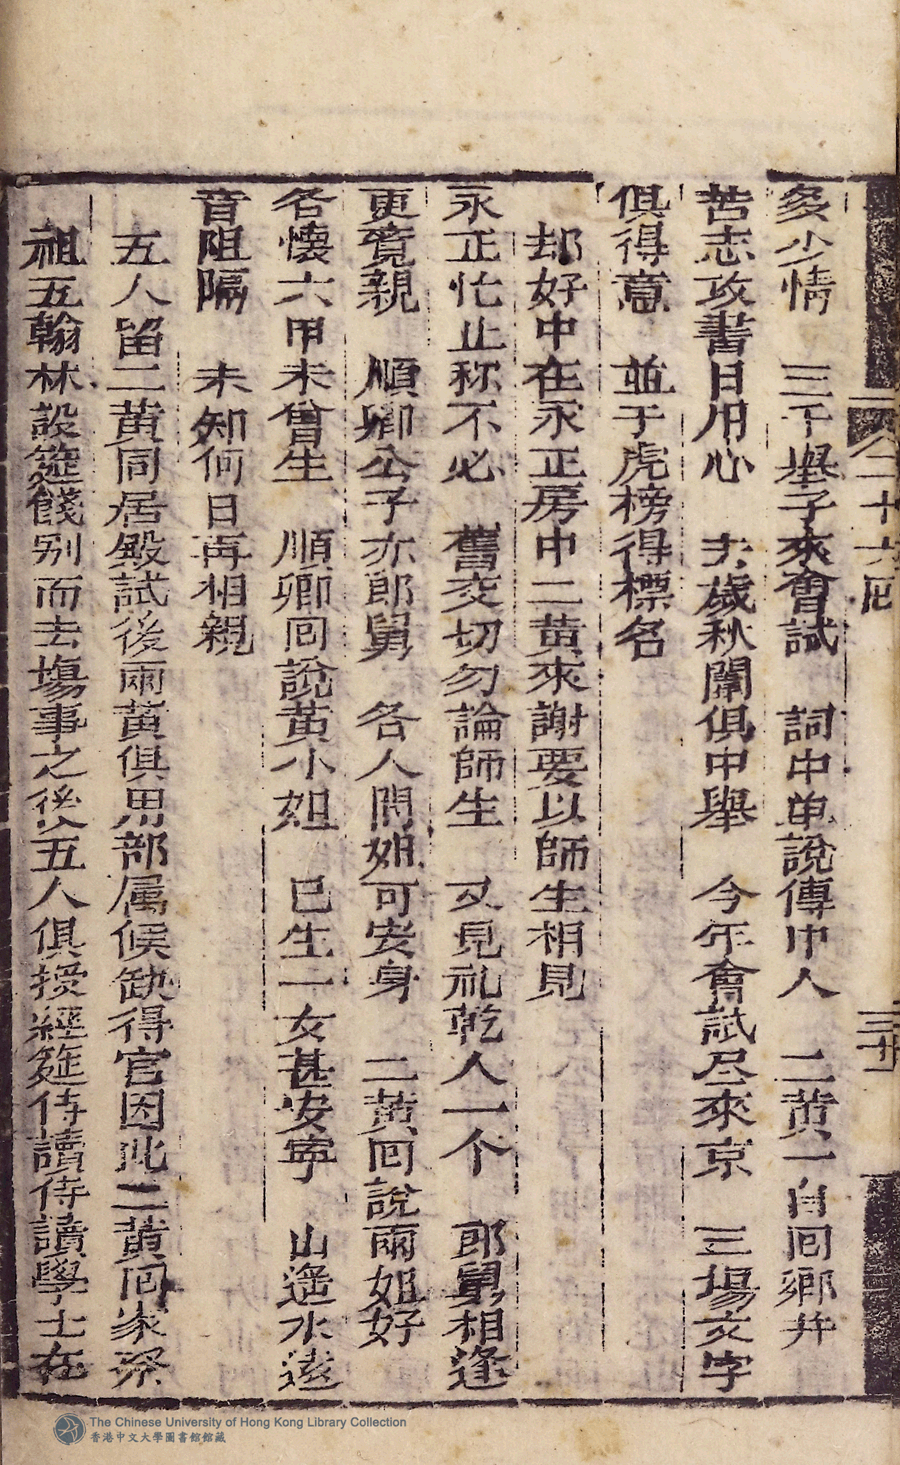 二十六回
三十
多少情　三千舉子來會試　詞中单說傳中人　二黄一自囘鄉井
苦志攻書日用心　去歲秋闈俱中舉　今年會試尽來京　三場文字
俱得意　並于虎榜得標名
却好中在永正房中二黄來謝要以師生相見
永正忙止称不必　舊交切勿論師生　又見礼乾人一个　郎舅相逢
更覚親　順卿公子亦郎舅　各人問姐可安身　二黄囘說兩姐好
各懷六甲未曾生　順卿囘說黄小姐　已生一女甚安寧　山遥水遠
音阻隔　未知何日再相親
五人留二黄同居殿試後兩黄俱用部属候缺得官因此二黄囘家祭
祖五翰林設筵餞别而去塲事之後公五人俱授經筵侍讀侍讀學士在
The Chinese University of Hong Kong Library Collection
香港中文大學圖書館館藏